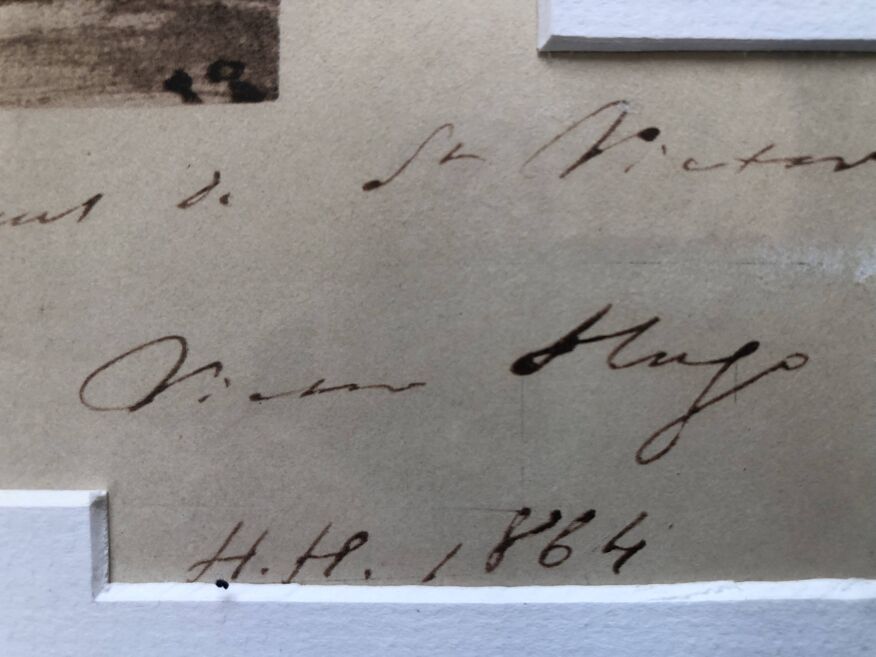 de St Victor
Victor Hugo
H.H. 1864